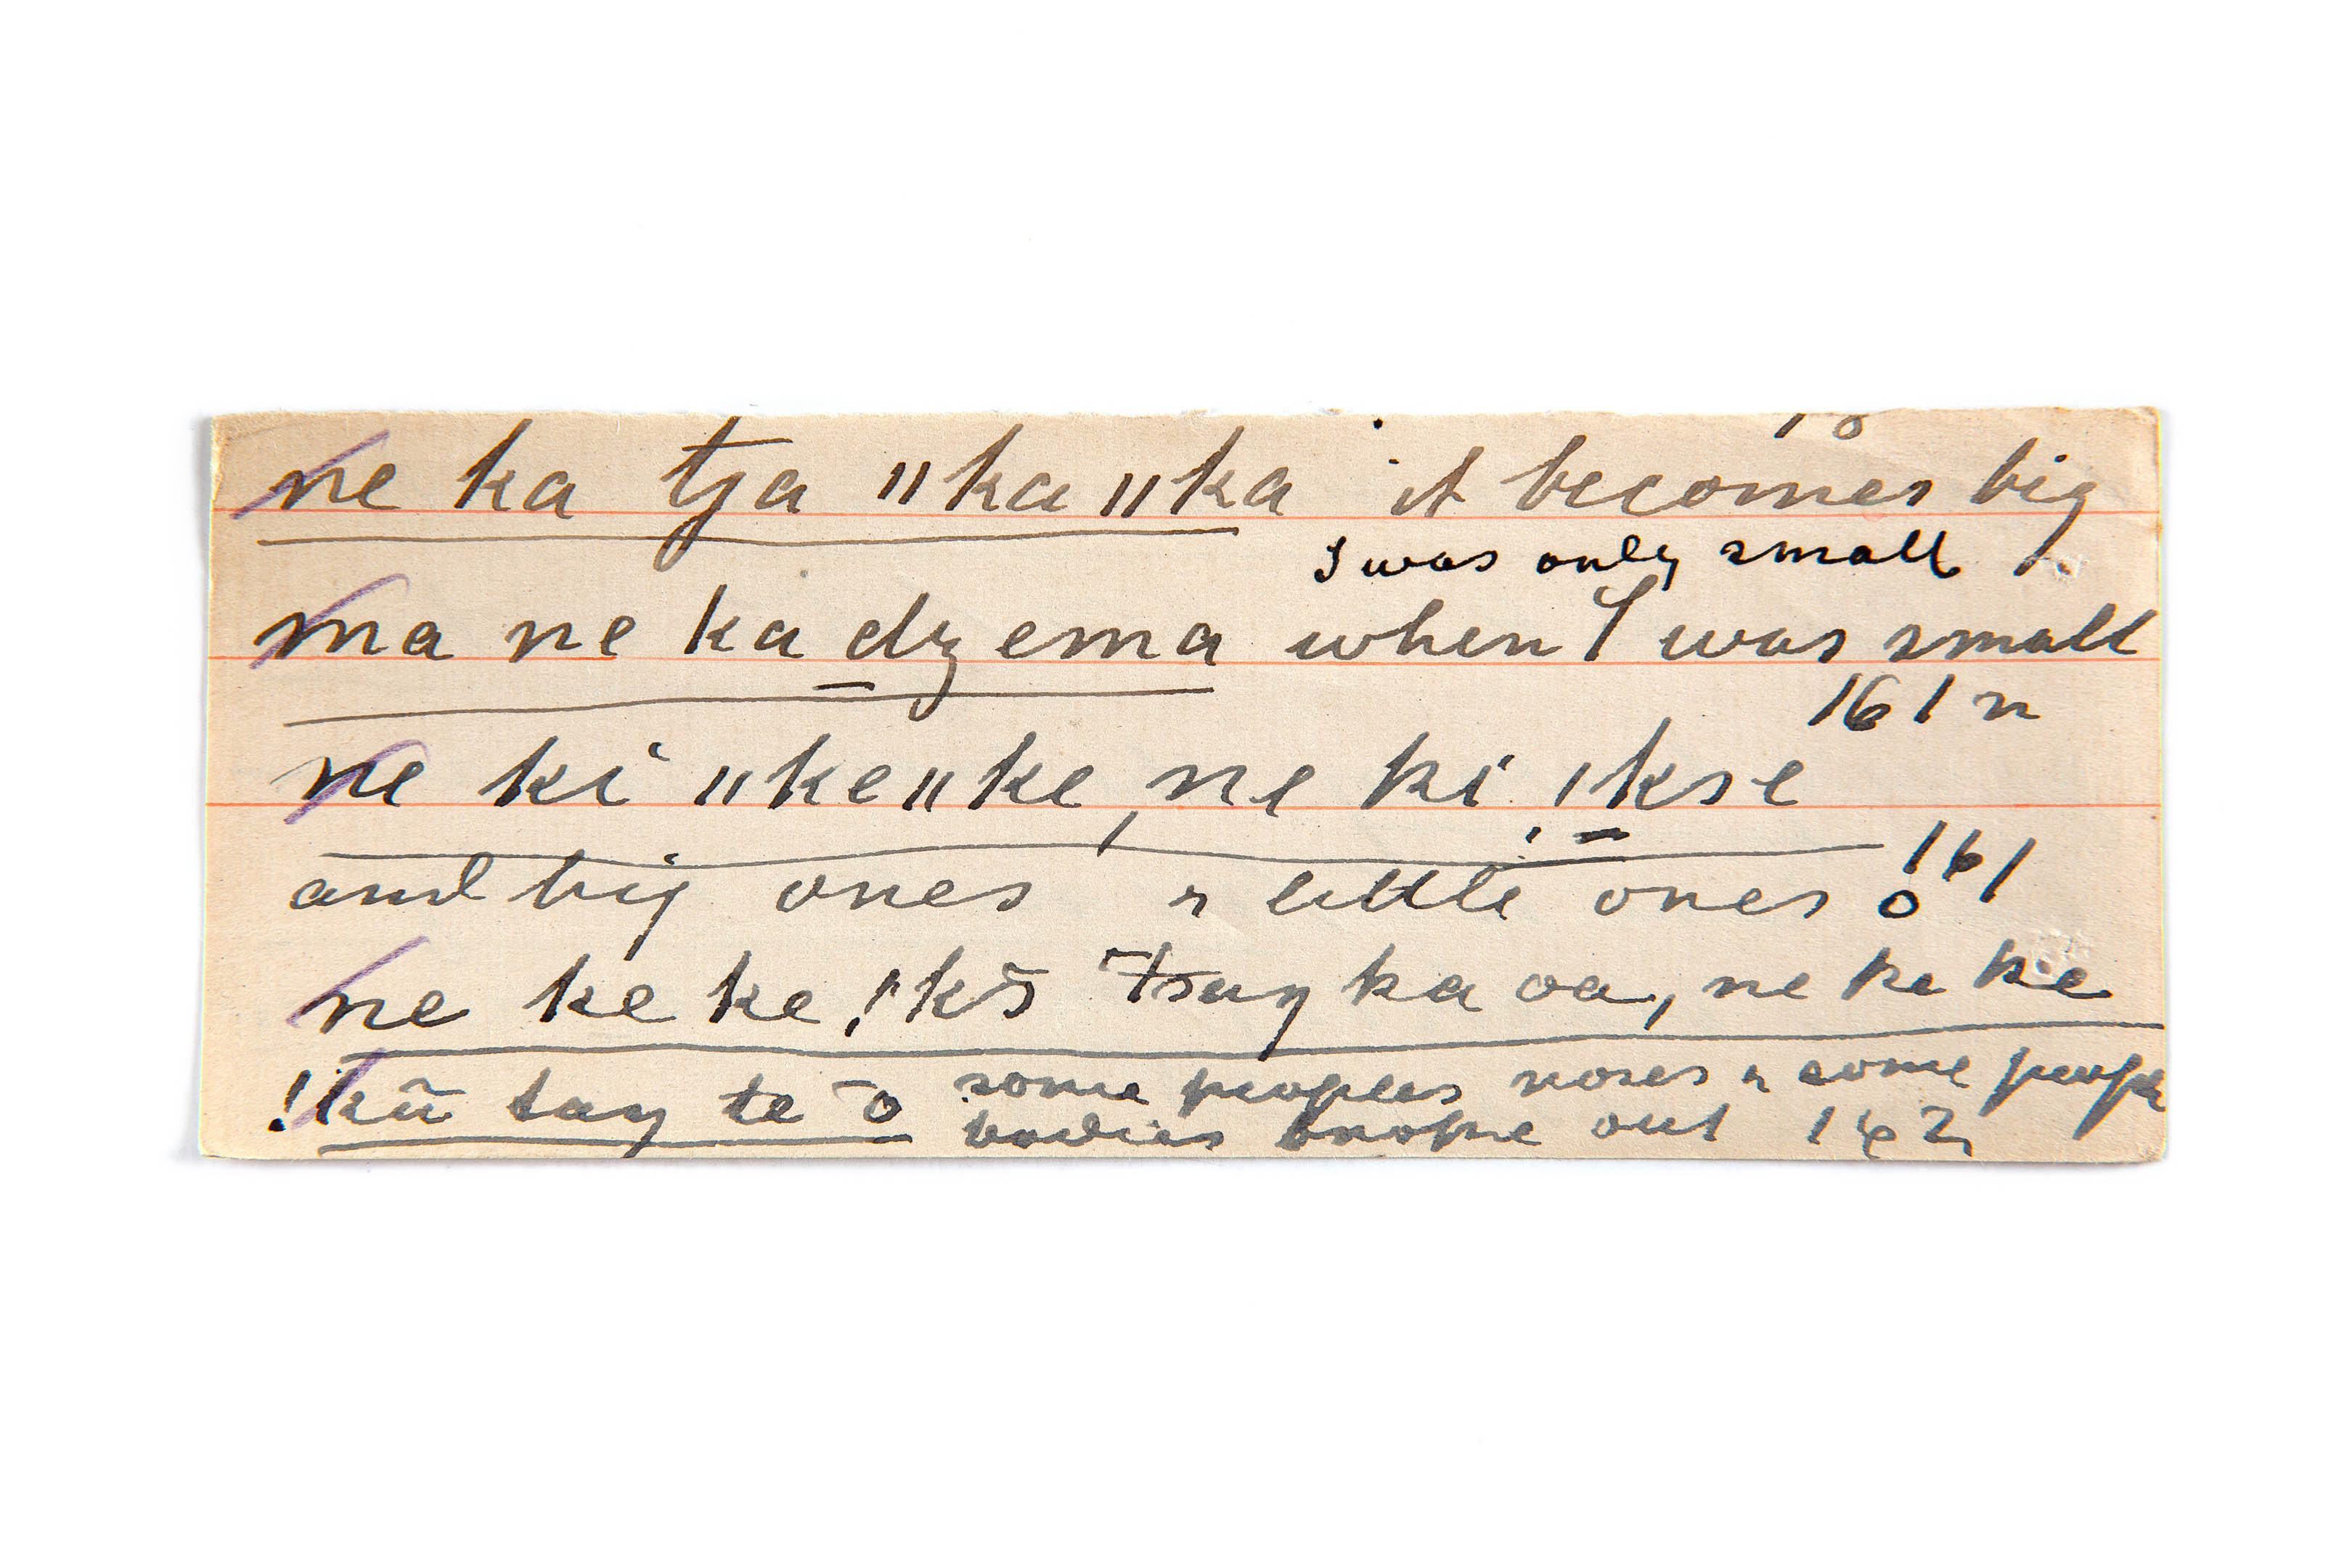 ne ka tja ǁka ǁka it becomes big
I was only small
ma ne ka dzema when I was small
161 n
ne ki ǁke ǁke, ne ki !kse
and big ones & little ones 161
ne ke ke !kŭ tsaŋ ka oa, ne ke ke
!kū taŋ te ō some peoples noses & some people
bodies out 162